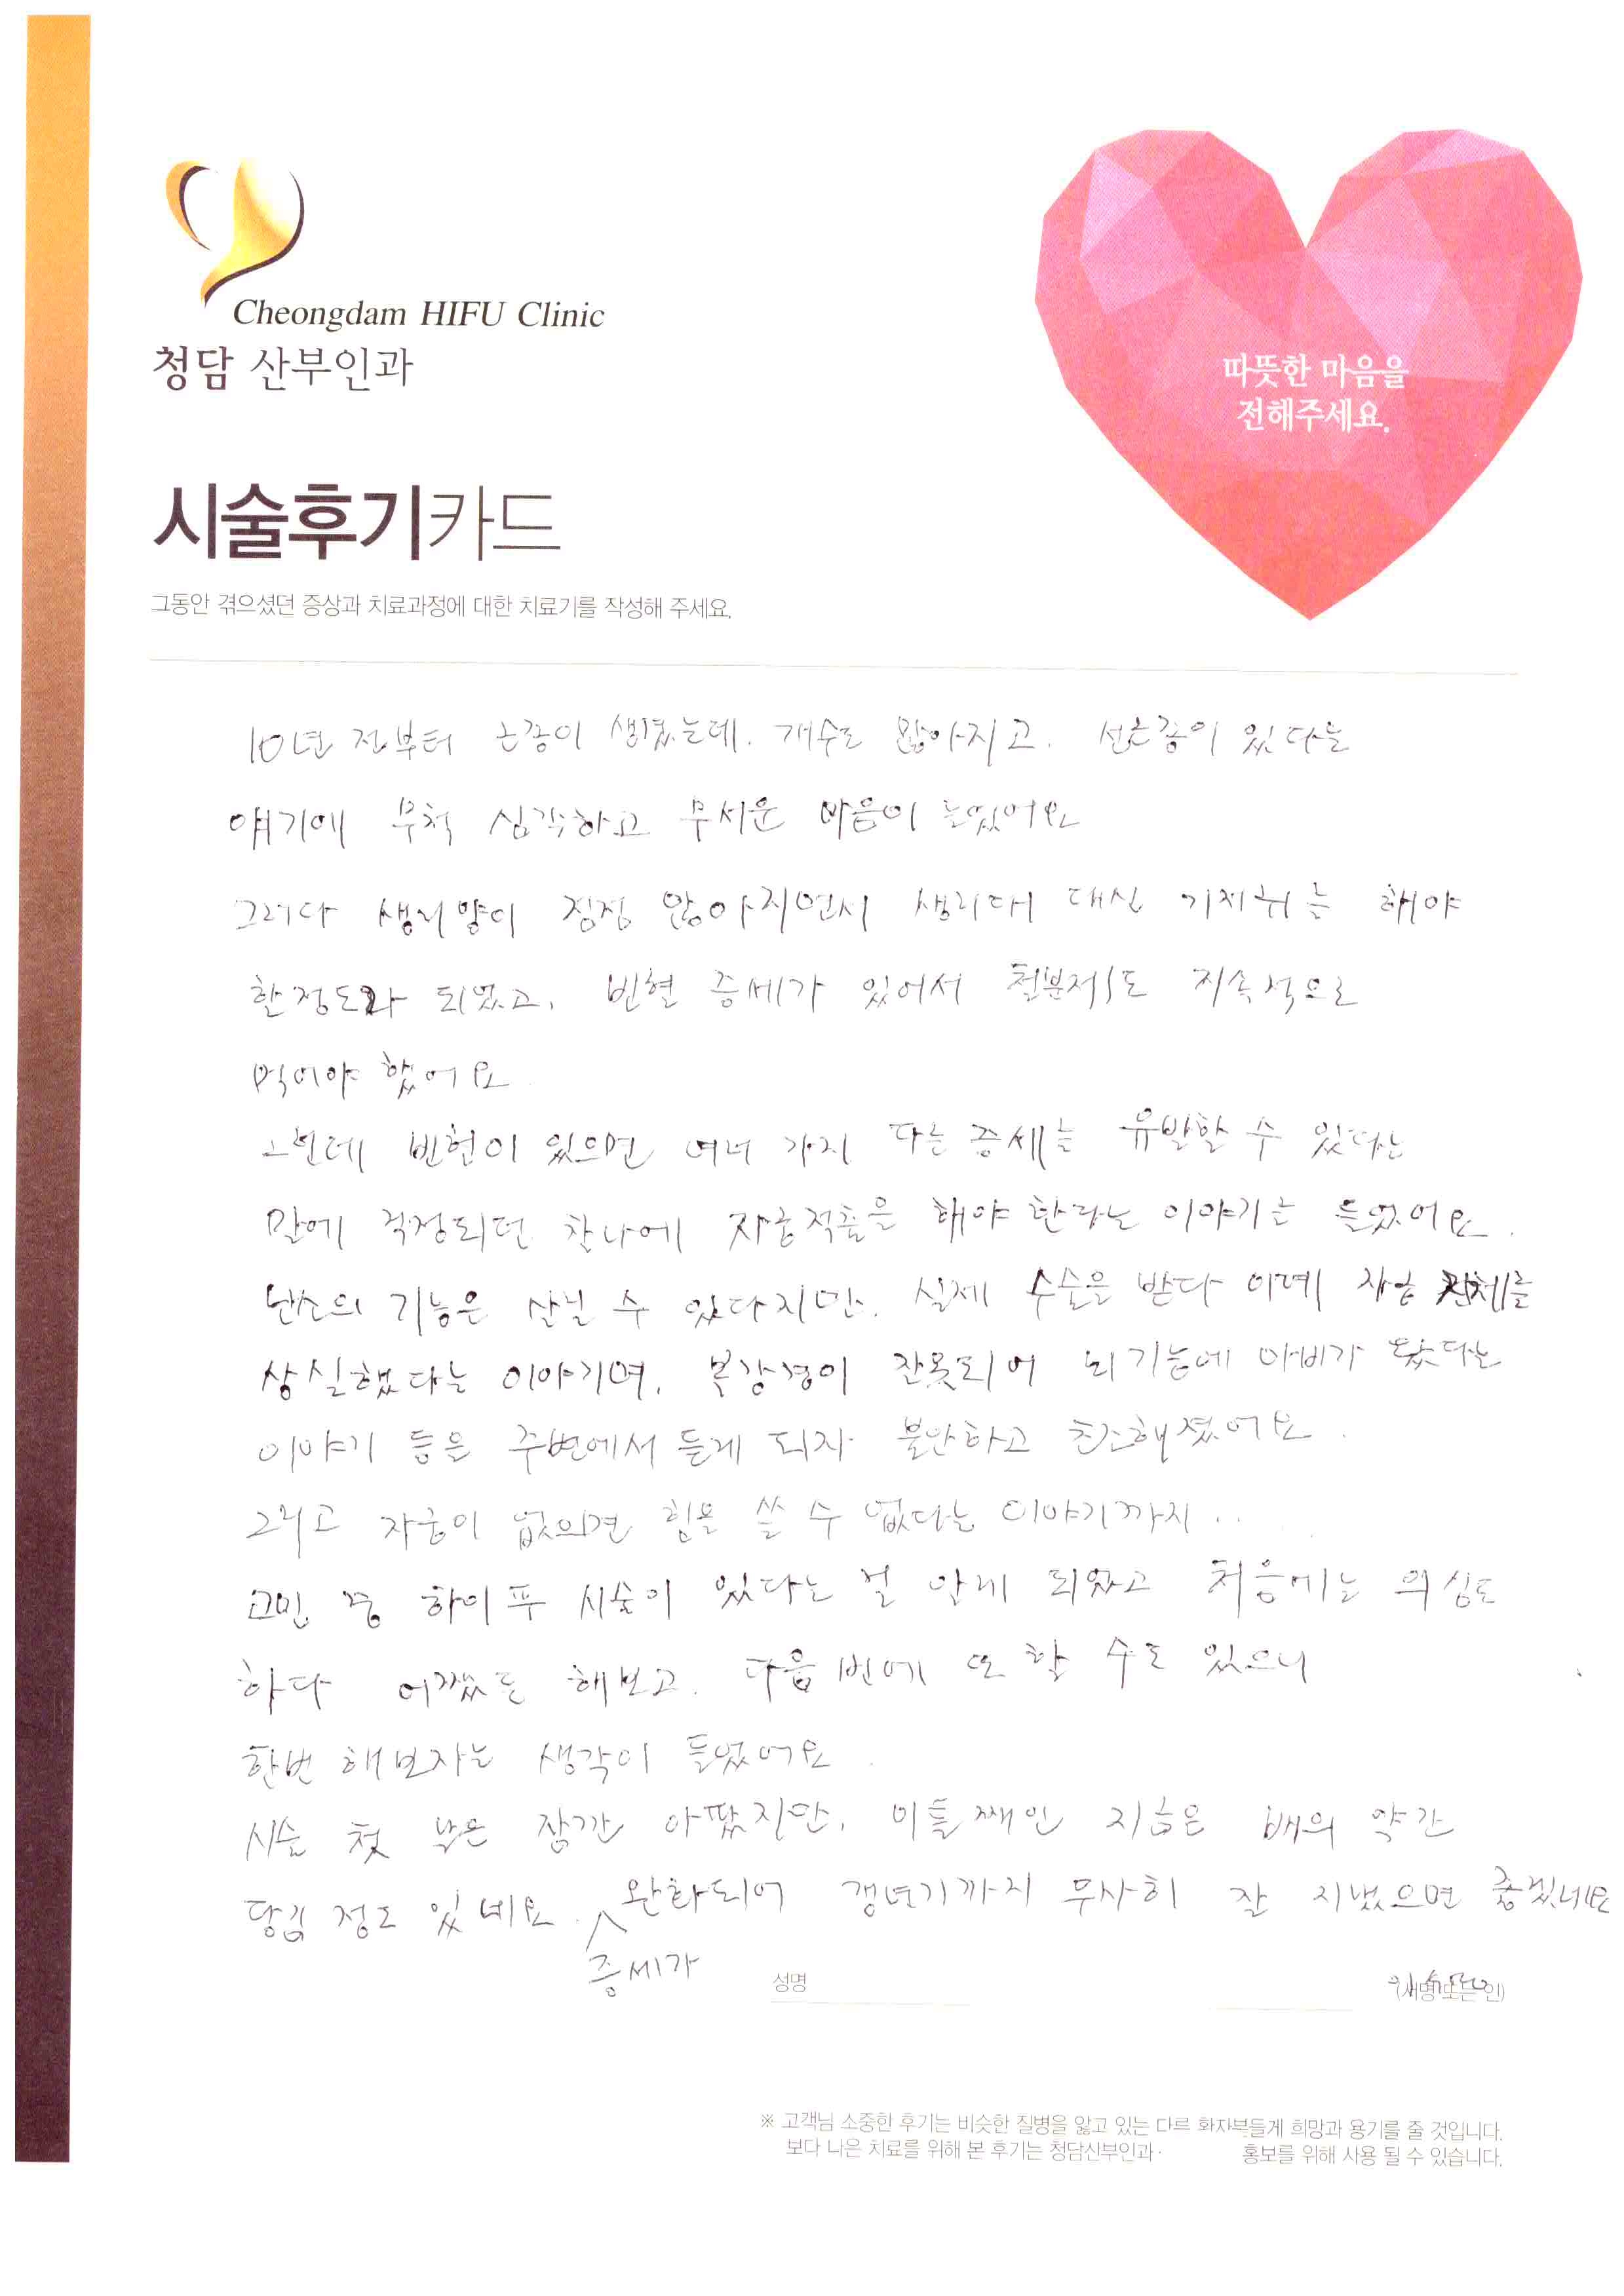 Cheongdam HIFU Clinic
청담 산부인과
따뜻한 마음을
전해주세요.
시술후기카드
그동안 겪으셨던 증상과 치료과정에 대한 치료기를 작성해 주세요.
10년 전부터 근종이 생겼는데. 개수도 많아지고. 선근종이 있다는
얘기에 무척 심각하고 무서운 마음이 들었어요
그러다 생리양이 점점 많아지면서 생리대 대신 기저귀를 해야
할 정도가 되었고, 빈혈 증세가 있어서 철분제도 지속적으로
먹어야 했어요
그런데 빈혈이 있으면 여러 가지 다른 증세를 유발할 수 있다는
말에 걱정되던 찰나에 자궁적출을 해야 한다는 이야기를 들었어요.
난소의 기능은 살릴 수 있다지만. 실제 수술을 받다 이미 자궁 자체를
상실했다는 이야기며, 복강경이 잘못되어 뇌기능에 마비가 왔다는
이야기 등을 주변에서 듣게 되자 불안하고 초조해졌어요.
그리고 자궁이 없으면 힘을 쓸 수 없다는 이야기까지..
고민 중 하이푸 시술이 있다는 걸 알게 되었고 처음에는 의심도
하다 어쨌든 해보고. 다음 번에 또 할 수도 있으니
한번 해보자는 생각이 들었어요.
시술 첫 날은 잠깐 아팠지만, 이틀째인 지금은 배의 약간
당김 정도 있네요. 증세가 완화되어 갱년기까지 무사히 잘 지냈으면 좋겠네요
성명 (서명 또는 인)
※ 고객님 소중한 후기는 비슷한 질병을 앓고 있는 다른 환자분들게 희망과 용기를 줄 것입니다.
보다 나은 치료를 위해 본 후기는 청담산부인과· 홍보를 위해 사용 될 수 있습니다.